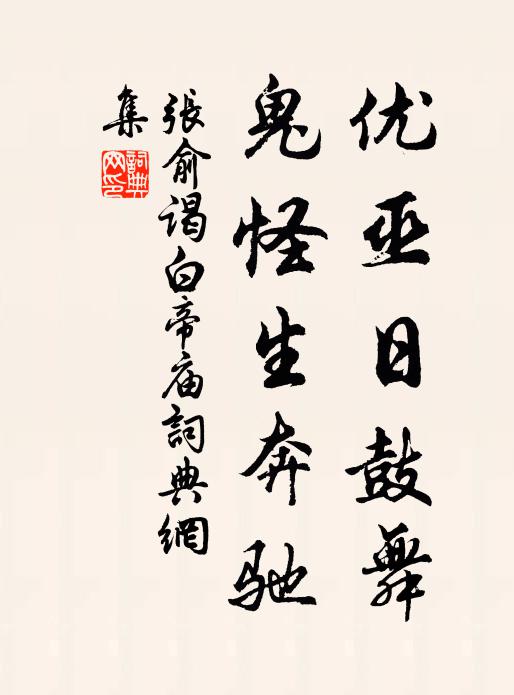 优巫日鼓舞
鬼怪生奔驰
張俞谒白帝庙詞典網
集
詞典網印